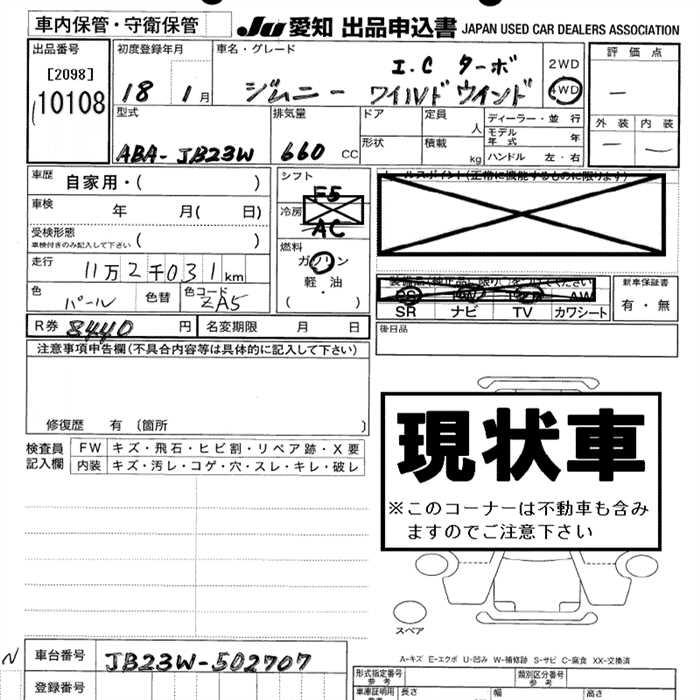 車内保管・守衛保管 JU 愛知 出品申込書 JAPAN USED CAR DEALERS ASSOCIATION
出品番号 初度登録年月 車名・グレード 評価点
[2098] I.C ターボ 2WD
10108 18 1月 ジムニー ワイルドウインド 4WD －
型式 排気量 ドア 定員 人 ディーラー・並行 外装 内装
モデル年式 年 － －
ABA-JB23W 660 CC 形状 積載 kg ハンドル 左・右
車歴 自家用・( ) シフト F5 セールスポイント(正常に機能するものに限ります)
車検 年 月( 日) 冷房 AC
受検形態 車検付きのみ記入して下さい ( ) 燃料
走行 11万2千031km ガソリン
軽・油
( ・ )
色 パール 色替 色コード ZA5 新車保証書
SR ナビ TV カワシート 有・無
R券 8440 円 名変期限 月 日 後日品
注意事項申告欄(不具合内容等は具体的に記入して下さい)
修復歴 有 〔箇所 〕
現状車
※このコーナーは不動車も含みますのでご注意下さい
検査員記入欄 FW キズ・飛石・ヒビ割・リペア跡・X要
内装 キズ・汚レ・コゲ・穴・スレ・キレ・破レ
スペア
A-キズ E-エクボ U-凹み W-補修跡 S-サビ C-腐食 XX-交換済
N 車台番号 JB23W-502707
登録番号
形式指定番号 参考 類別区分番号 参考
車庫証明用 長さ 幅 高さ